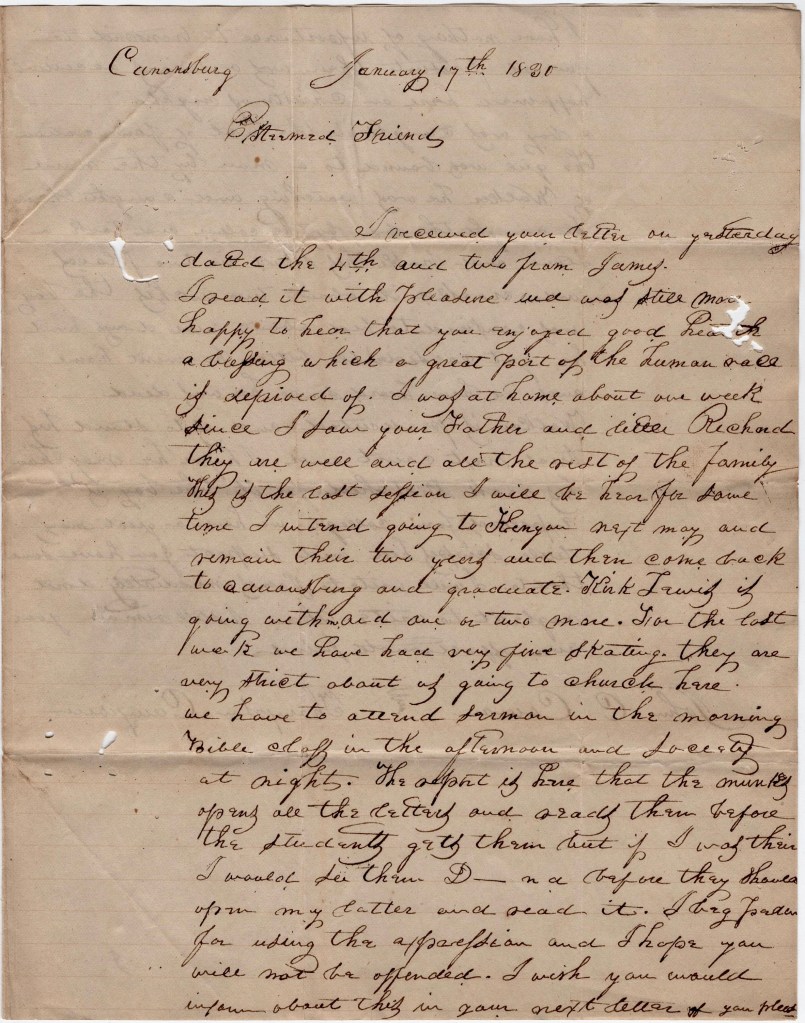 Canonsburg January 17th 1830
Esteemed Friend
I received your letter on yesterday
dated the 4th and two from James.
I read it with pleasure and was still more
happy to hear that you enjoyed good health
a blessing which a great part of the human race
is deprived of. I was at home about one week
since I saw your Father and little Richard
they are well and all the rest of the family
this is the last session I will be hear for some
time I intend going to Kenyon next may and
remain their two years and then come back
to canonsburg and graduate. Kirk Lewis is
going with and one or two more. For the last
week we have had very fine skating. they are
very strict about us going to church here.
we have to attend sermon in the morning
Bible class in the afternoon and society
at night. The report is here that the munks
opens all the letters and reads them before
the students gets them but if I was their
I would see them D—nd before they should
open my latter and read it. I beg pardon
for using the expression and I hope you
will not be offended. I wish you would
inform about this in your next letter if you please